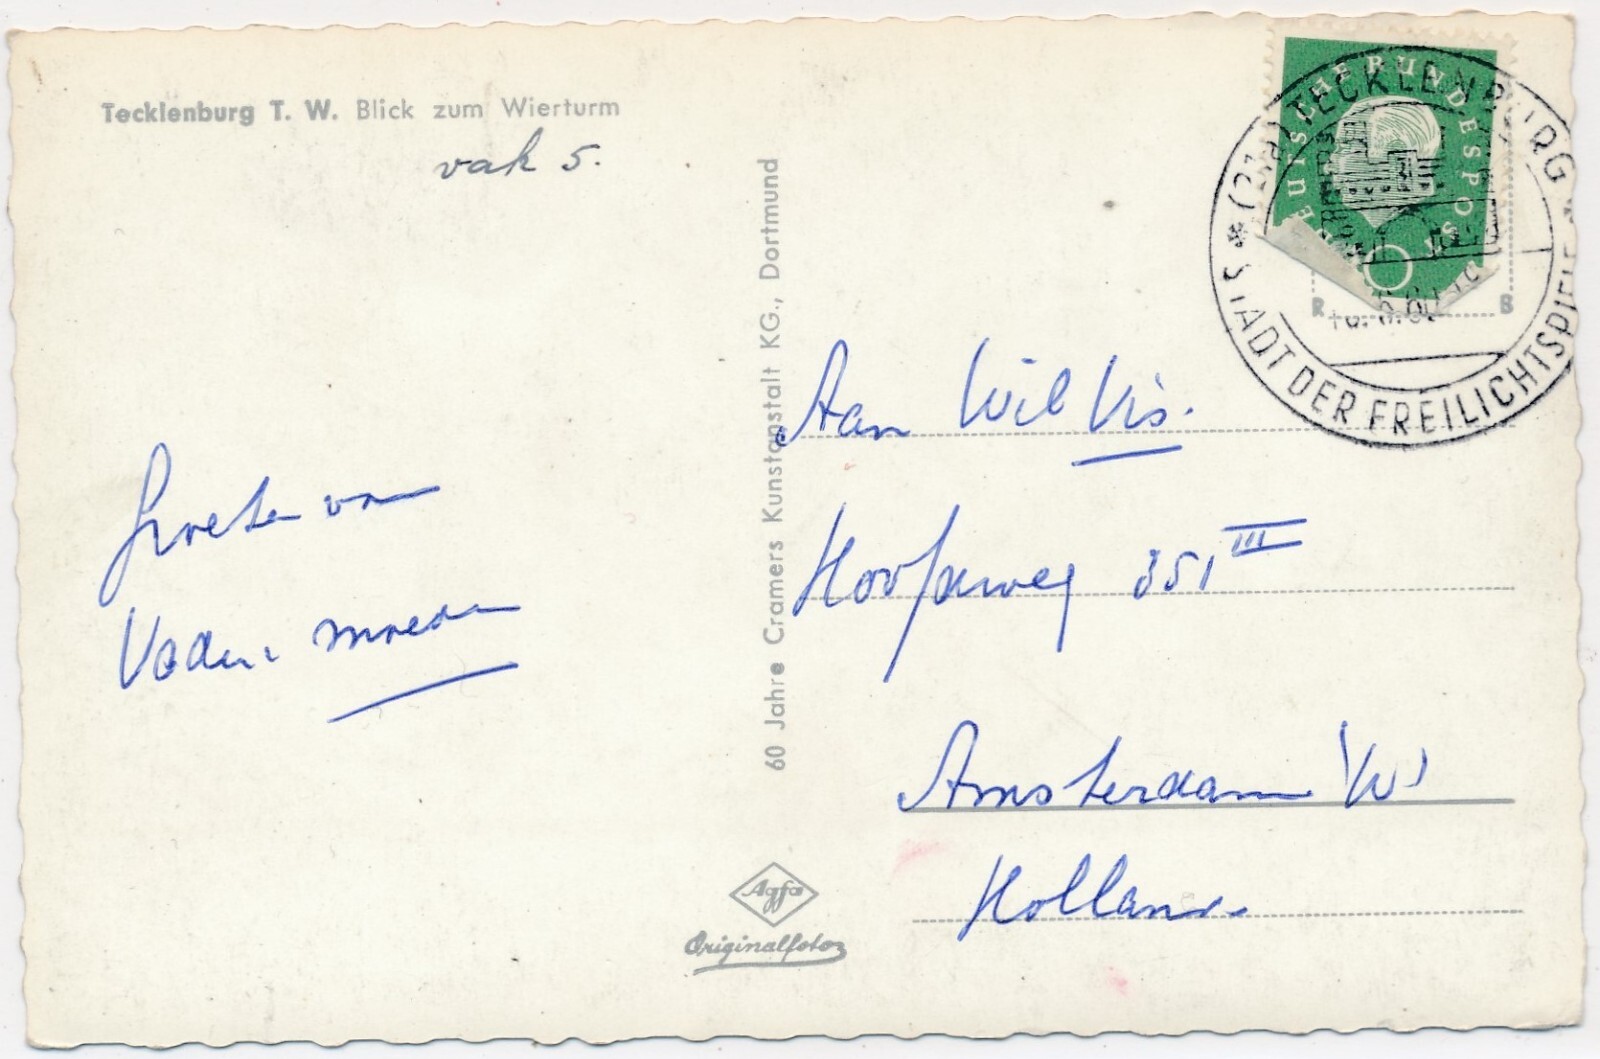 Tecklenburg T. W. Blick zum Wierturm
vak 5.
Groeten van
Vader moeder
60 Jahre Cramers Kunstanstalt KG., Dortmund
Agfa
Originalfotos
DEUTSCHE BUNDESPOST
(21a) TECKLENBURG
STADT DER FREILICHTSPIELE
R B
Aan Wil Vis.
351 III
Amsterdam W
Holland.